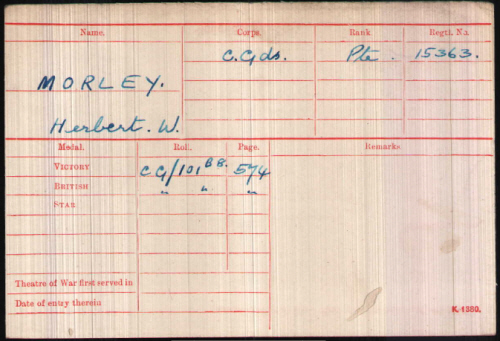 Name. Corps. Rank Regtl. No.
C. Gds. Pte. 15363.
MORLEY.
Herbert. W.
Medal. Roll. Page. Remarks.
VICTORY CG/101 BB. 574
BRITISH " " "
STAR
Theatre of War first served in
Date of entry therein
K. 1380.